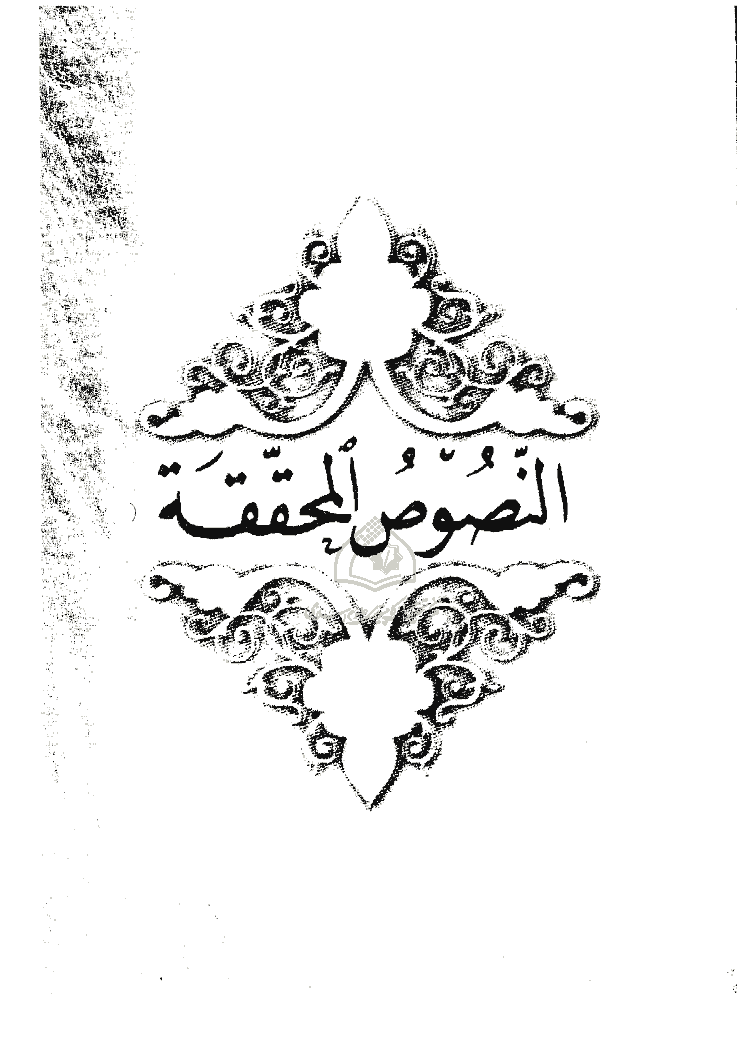 النُّصُوْصُ المُحقّقَة